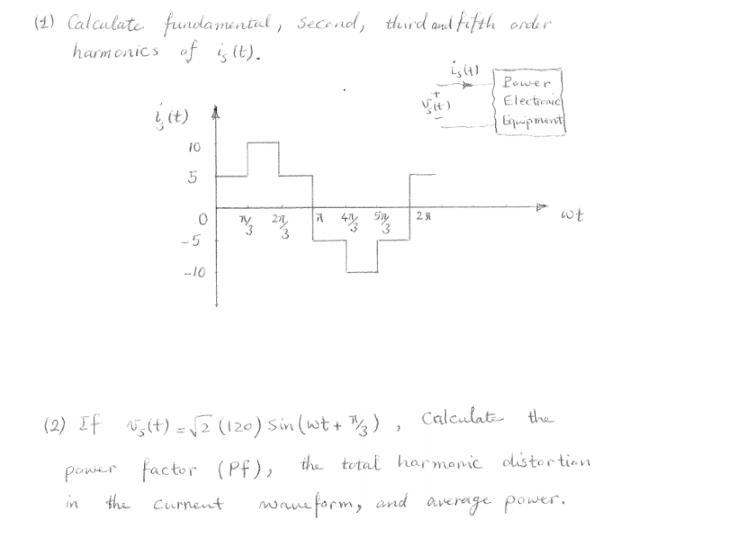 (1) Calculate fundamental, second, third and fifth order
harmonics of is(t).
is(t)
Power
Electronic
Equipment
+
vs(t)
-
is(t)
10
5
0
-5
-10
π/3
2π/3
π
4π/3
5π/3
2π
wt
(2) If vs(t) = √2 (120) Sin (wt + π/3), Calculate the
power factor (Pf), the total harmonic distortion
in the current waveform, and average power.